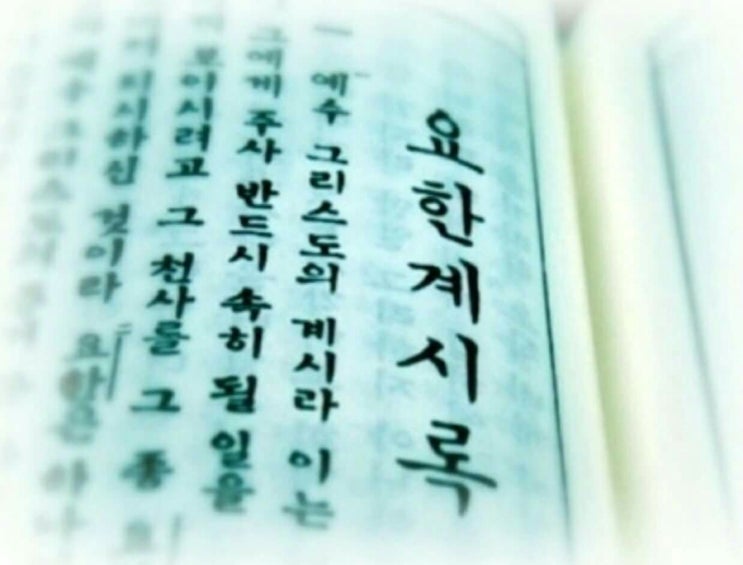 요한계시록
一 예수 그리스도의 계시라 이는
그에게 주사 반드시 속히 될 일을
보이시려고 그 천사를 그 종 요
지시하신 것이라 요한은 하나